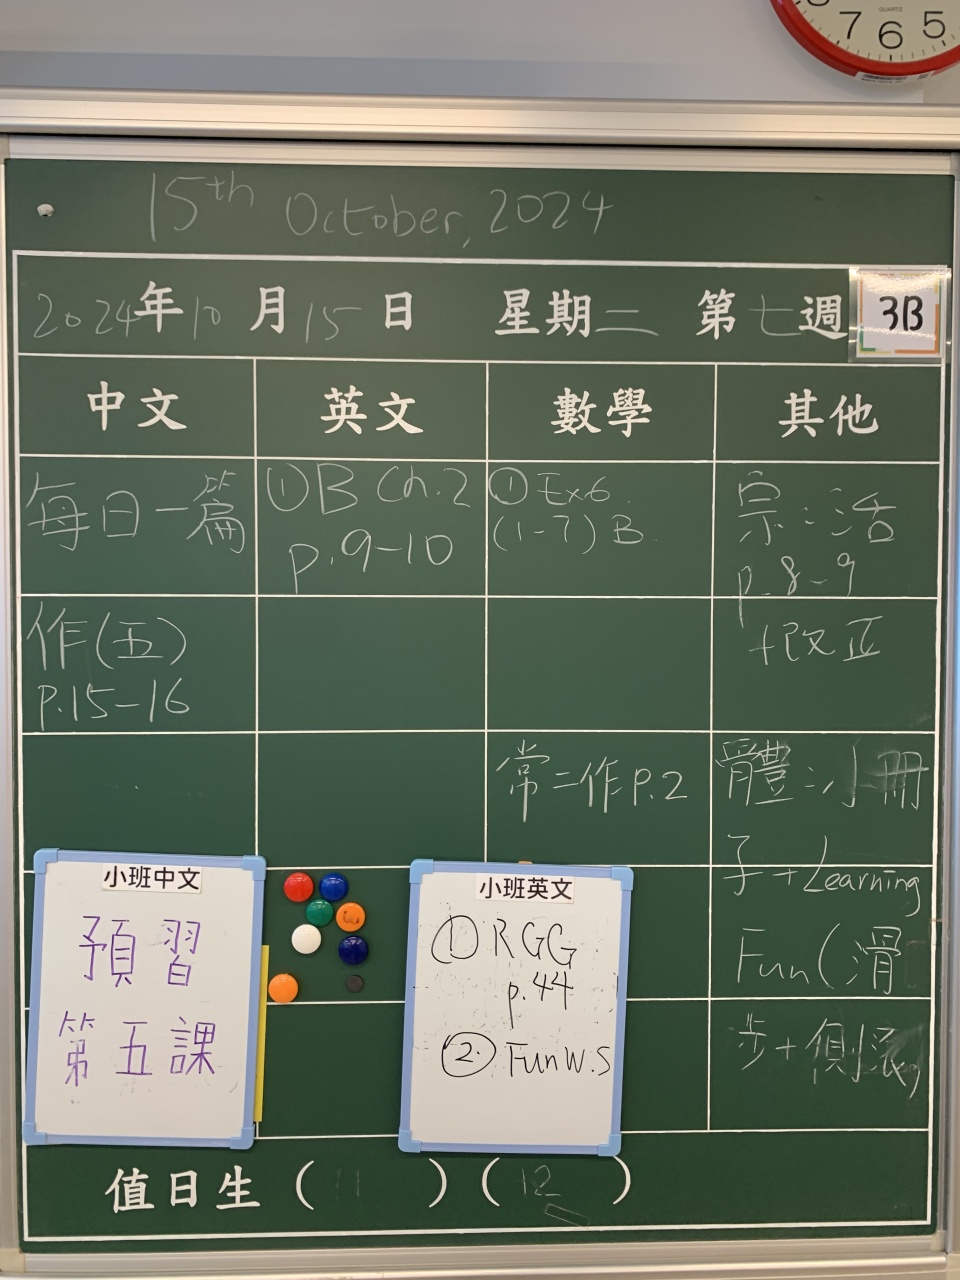 QUARTZ
7 6 5
15th October, 2024
2024年10月15日 星期二 第七週 3B
中文
英文
數學
其他
每日一篇
作(五)
p.15-16
①B Ch.2
p.9-10
①Ex6
(1-7) B
常二作p.2
宗:活
p.8-9
+改正
體:小冊
子+Learning
Fun(滑
步+側滾)
小班中文
預習
第五課
小班英文
① RGG
p.44
② Fun W.S
值日生 ( 11 ) ( 12 )